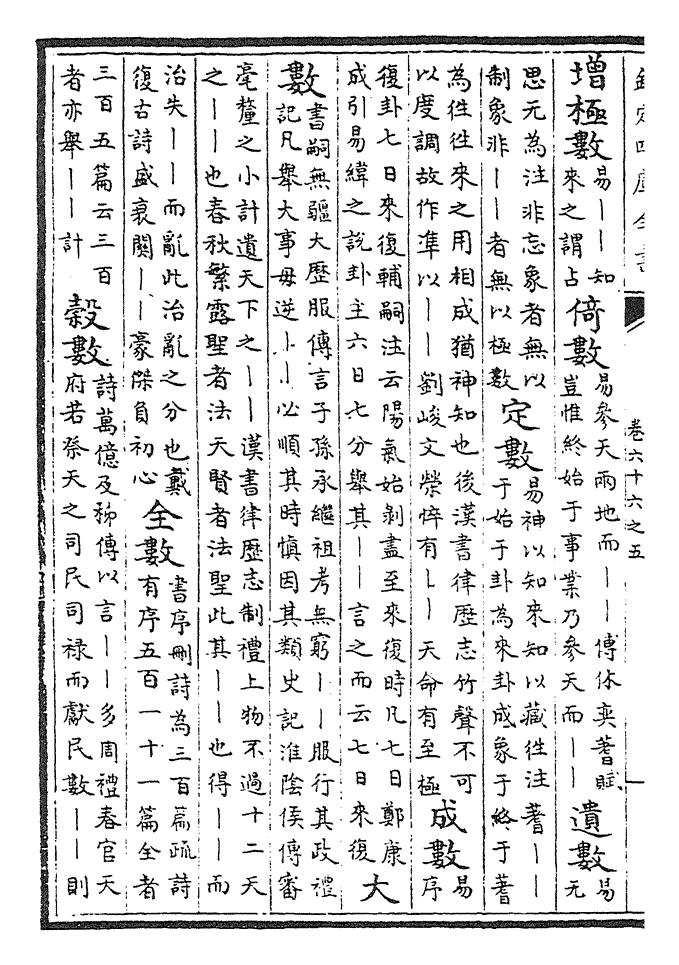 欽定四庫全書
卷六十六之五
一
増極數
易——知
來之謂占
倚數
易參天兩地而——傅休奕蓍賦
豈惟終始于事業乃參天而——
遺數
易
无
思元為注非忘象者無以
制象非——者無以極數
定數
易神以知來知以藏往注蓍——
于始于卦為來卦成象于終于蓍
為往往來之用相成猶神知也後漢書律歴志竹聲不可
以度調故作準以——劉峻文榮悴有——天命有至極
成數
易
序
復卦七日來復輔嗣注云陽氣始剥盡至來復時凡七日鄭康
成引易緯之說卦主六日七分舉其——言之而云七日來復
大
數
書嗣無疆大歴服傳言子孫承繼祖考無窮——服行其政禮
記凡舉大事毋逆——必順其時慎因其類史記淮陰侯傳審
毫釐之小計遺天下之——漢書律歴志制禮上物不過十二天
之——也春秋繁露聖者法天賢者法聖此其——也得——而
治失——而亂此治亂之分也戴
復古詩盛衰關——豪傑負初心
全數
書序刪詩為三百篇疏詩
有序五百一十一篇全者
三百五篇云三百
者亦舉——計
穀數
詩萬億及秭傳以言——多周禮春官天
府若祭天之司民司禄而獻民數——則